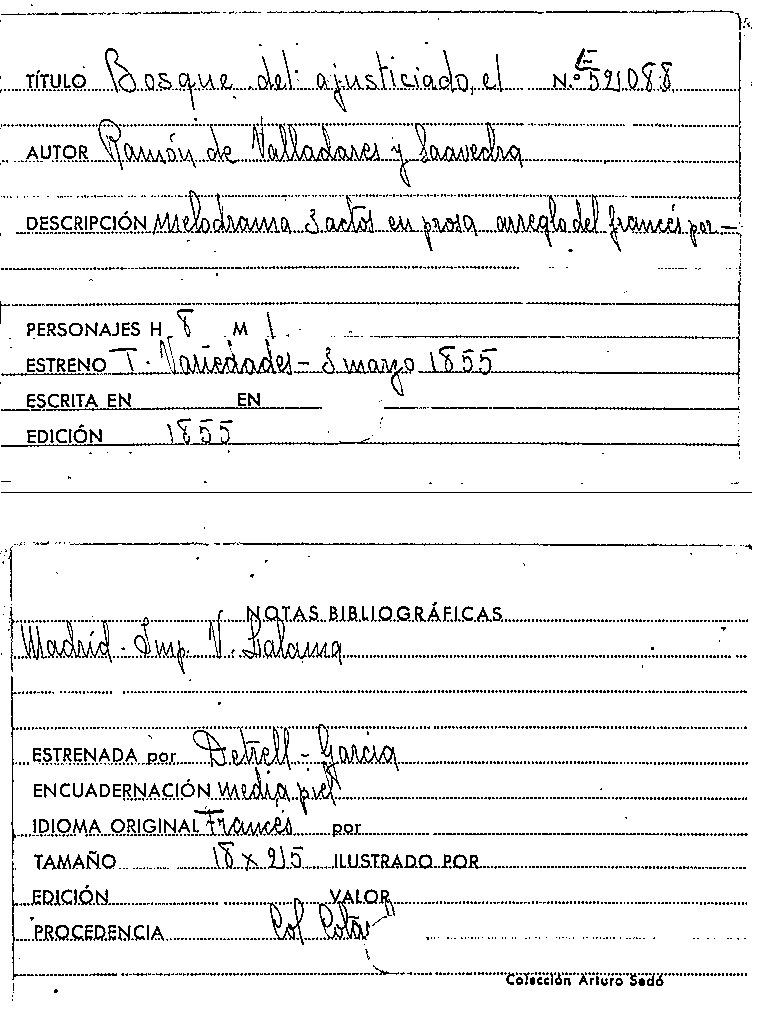 TÍTULO Bosque del ajusticiado, el N.º 521088
AUTOR Ramón de Valladares y Saavedra
DESCRIPCIÓN Melodrama 3 actos en prosa arreglo del francés por -
PERSONAJES H 8 M 1
ESTRENO T. Variedades - 3 marzo 1855
ESCRITA EN EN
EDICIÓN 1855
NOTAS BIBLIOGRÁFICAS
Madrid - Imp. V. Lalama
ESTRENADA por Detrell - García
ENCUADERNACIÓN media piel
IDIOMA ORIGINAL Francés por
TAMAÑO 18 x 215 ILUSTRADO POR
EDICIÓN VALOR
PROCEDENCIA Col
Colección Arturo Sedó